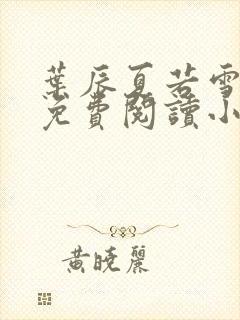 葉辰夏若雪
免費閱讀小
黃曉麗